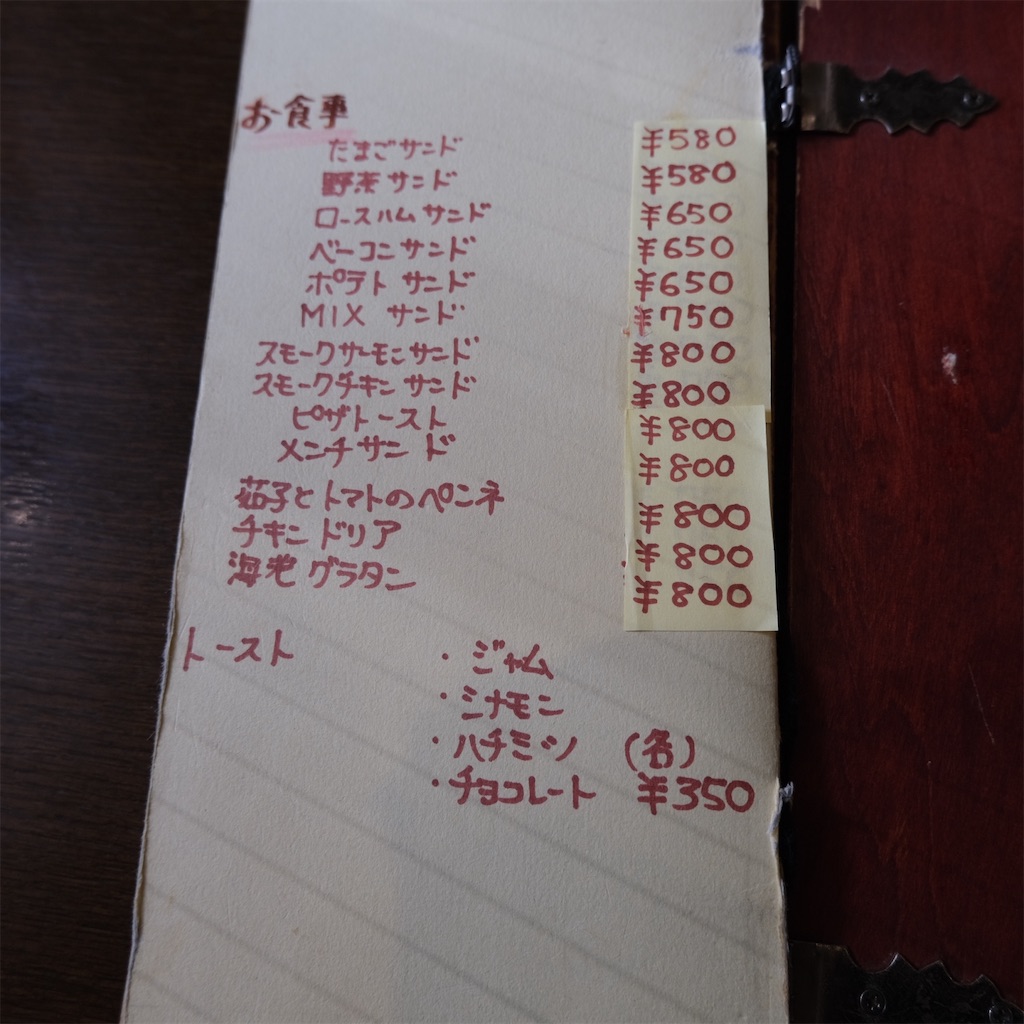 お食事
たまごサンド ¥580
野菜サンド ¥580
ロースハムサンド ¥650
ベーコンサンド ¥650
ポテトサンド ¥650
MIX サンド ¥750
スモークサーモンサンド ¥800
スモークチキンサンド ¥800
ピザトースト ¥800
メンチサンド ¥800
茄子とトマトのペンネ ¥800
チキンドリア ¥800
海老グラタン ¥800
トースト ・ジャム
・シナモン
・ハチミツ (各)
・チョコレート ¥350